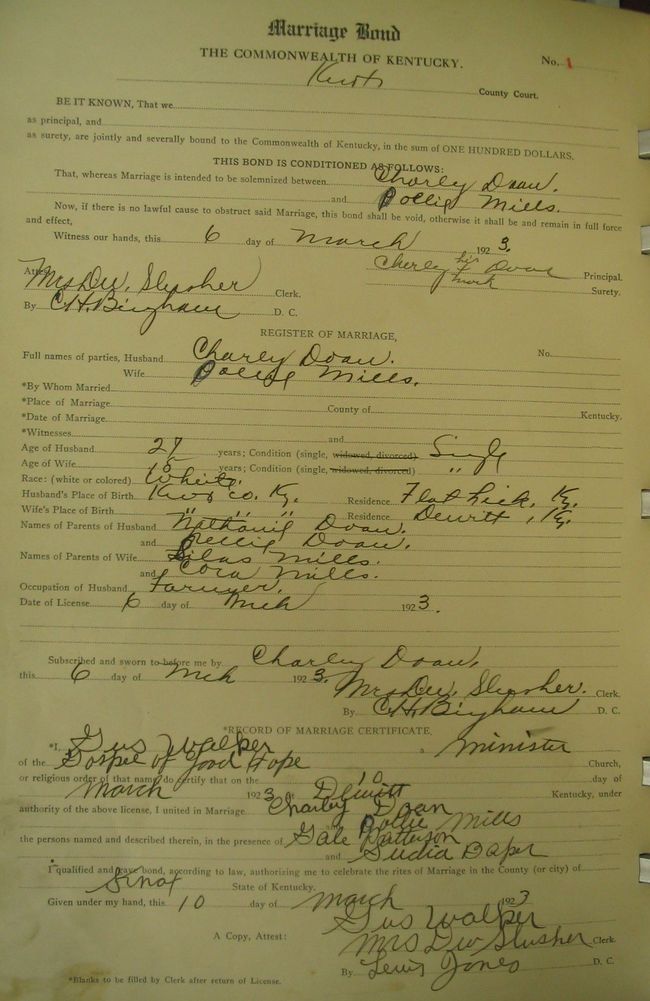 Marriage Bond
THE COMMONWEALTH OF KENTUCKY.
No. 1
Knox County Court.
BE IT KNOWN, That we
as principal, and
as surety, are jointly and severally bound to the Commonwealth of Kentucky, in the sum of ONE HUNDRED DOLLARS.
THIS BOND IS CONDITIONED AS FOLLOWS:
That, whereas Marriage is intended to be solemnized between Charley Doan.
and Dollie Mills.
Now, if there is no lawful cause to obstruct said Marriage, this bond shall be void, otherwise it shall be and remain in full force
and effect,
Witness our hands, this 6 day of March 1923.
Charley his x mark Doan Principal.
Attest Mrs D.W. Slusher Clerk.
Surety.
By C.H. Bingham D. C.
REGISTER OF MARRIAGE,
Full names of parties, Husband Charley Doan. No.
Wife Dollie Mills.
*By Whom Married
*Place of Marriage County of Kentucky.
*Date of Marriage
*Witnesses and
Age of Husband 27 years; Condition (single, widowed, divorced) Single
Age of Wife years; Condition (single, widowed, divorced) "
Race: (white or colored) White.
Husband's Place of Birth Knox co. Ky. Residence Flat Lick, Ky.
Wife's Place of Birth " " " Residence Dewitt, Ky.
Names of Parents of Husband Doan.
and Nellie Doan.
Names of Parents of Wife Silas Mills.
and Cora Mills.
Occupation of Husband Farmer.
Date of License 6 day of Mch 1923.
Subscribed and sworn to before me by Charley Doan.
this 6 day of Mch 1923. Mrs D.W. Slusher. Clerk.
By C.H. Bingham D. C.
*RECORD OF MARRIAGE CERTIFICATE,
*I, Gus Walker a Minister
of the Gospel of Good Hope Church,
or religious order of that name, do certify that on the 10 day of
March 1923 at Dewitt Kentucky, under
authority of the above license, I united in Marriage Charley Doan
and Dollie Mills
the persons named and described therein, in the presence of Gale Patterson
and
I qualified and gave bond, according to law, authorizing me to celebrate the rites of Marriage in the County (or city) of
Knox State of Kentucky.
Given under my hand, this 10 day of March 1923
Gus Walker
A Copy, Attest: Mrs D W Slusher Clerk.
By Lewis Jones D. C.
*Blanks to be filled by Clerk after return of License.